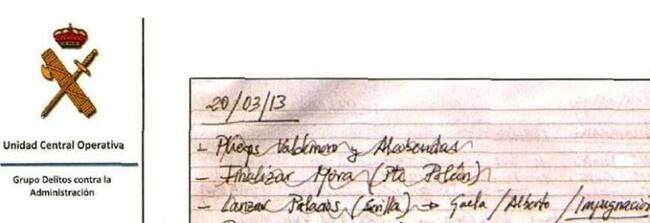 Unidad Central Operativa
Grupo Delitos contra la
Administración
20/03/13
- Pliegos Valdemoro y Alcobendas
- Finalizar Mora (Pte Polcán)
- Lanzar Palacios (Sevilla) → Gaela / Alberto / Impugnación